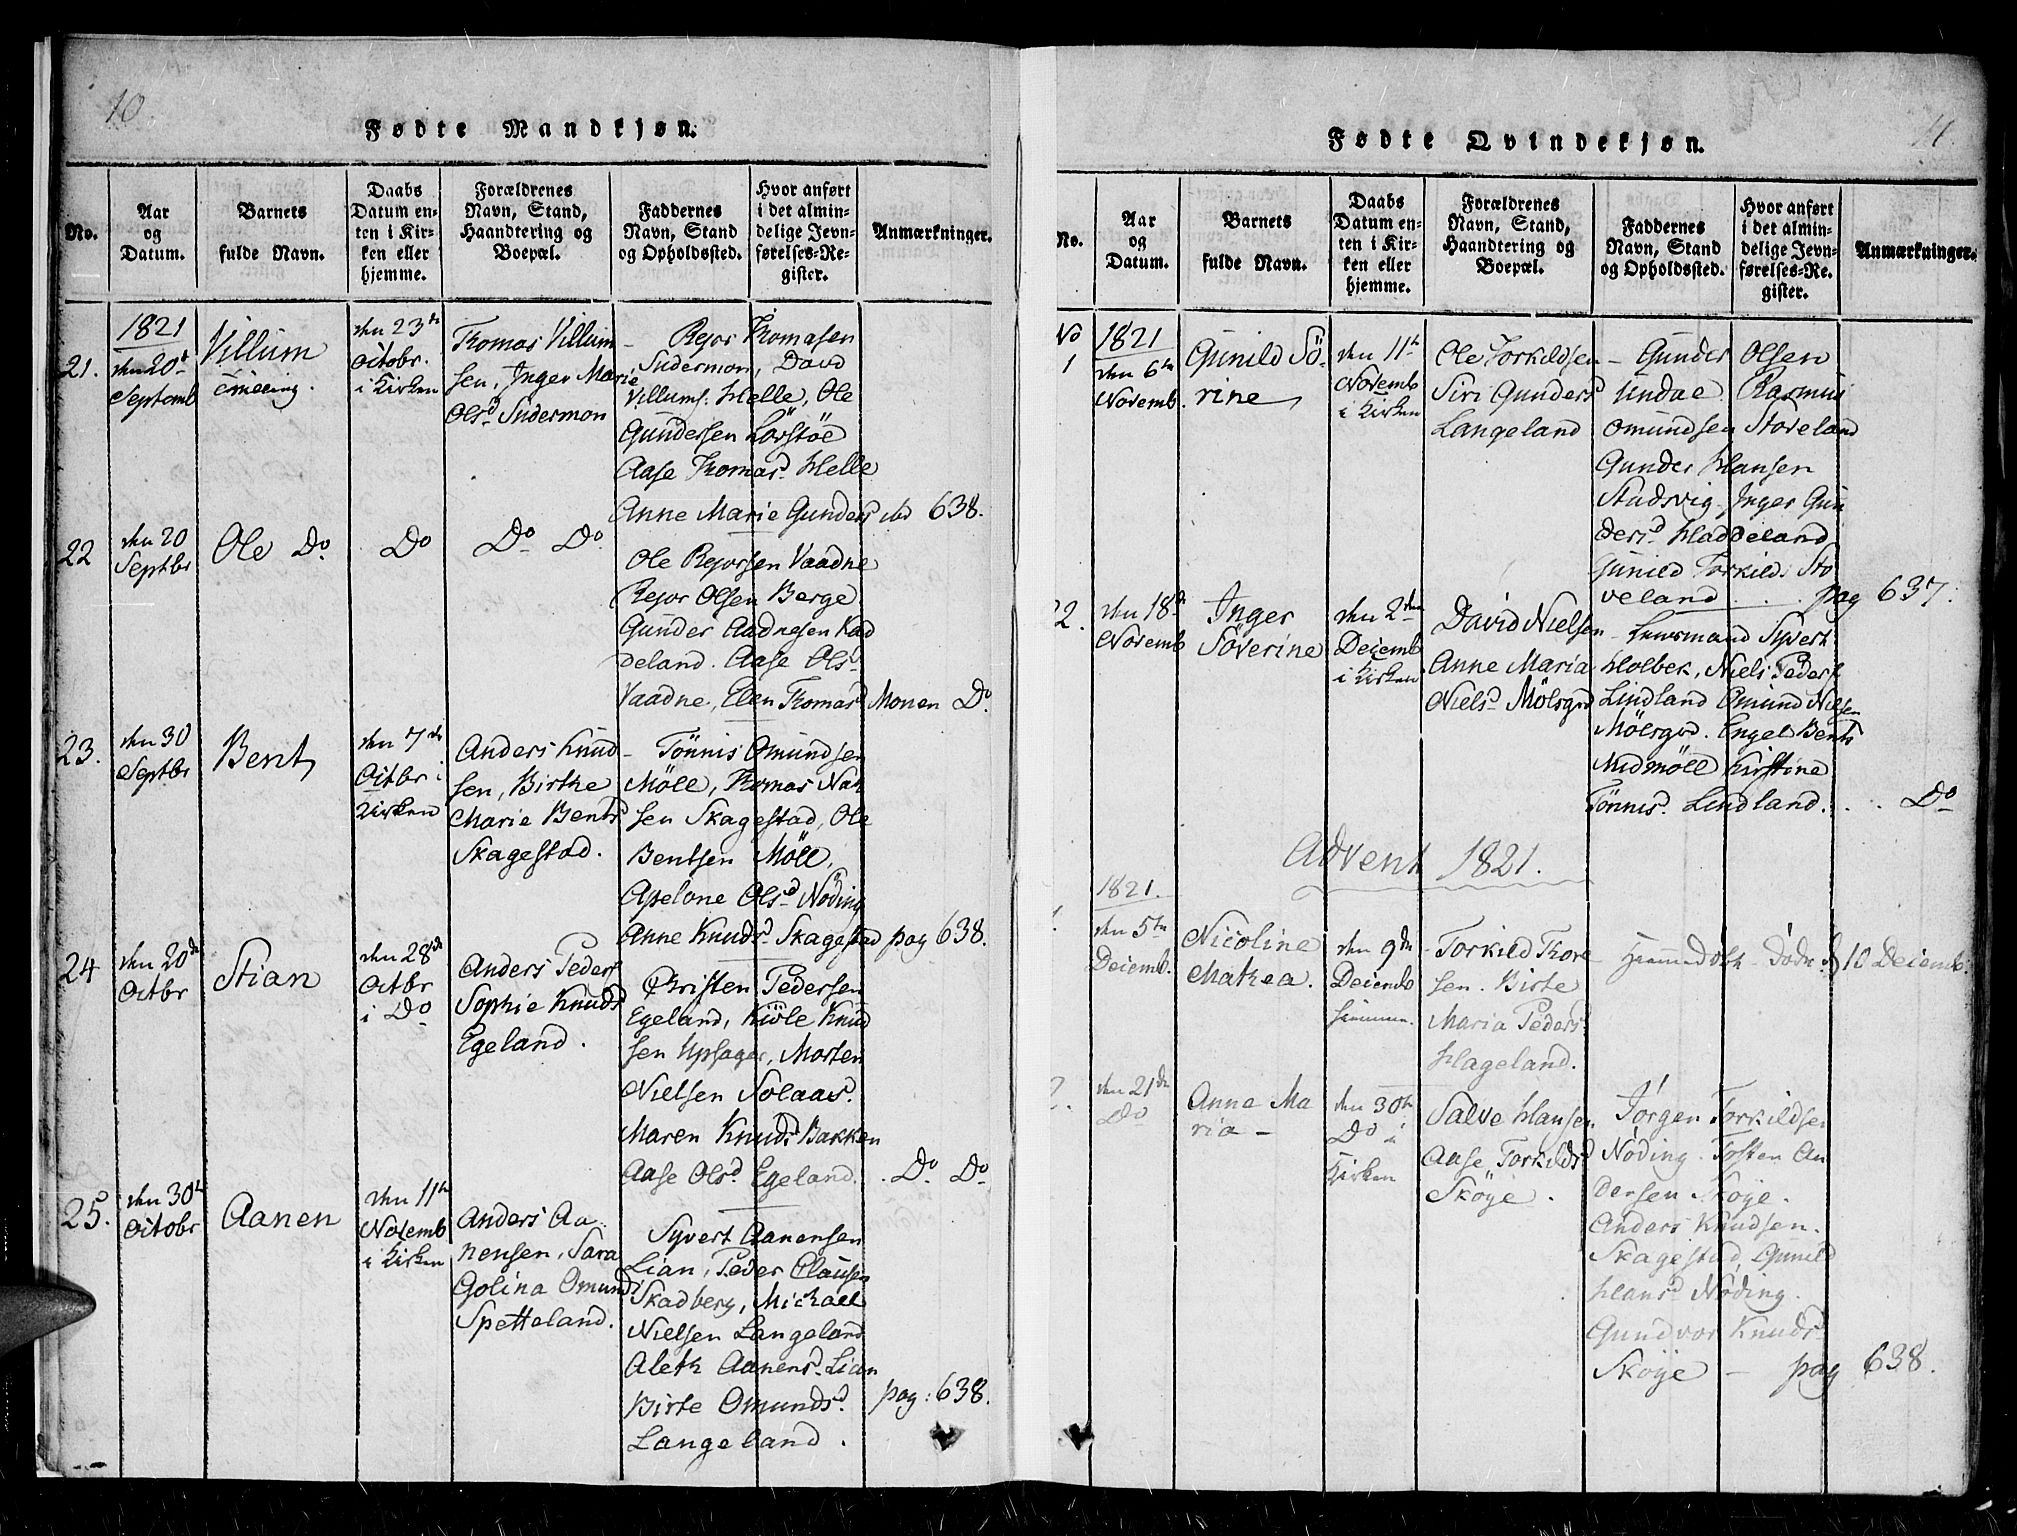 10.
Fødte Mandkjøn.
No.
Aar
og
Datum.
Barnets
fulde Navn.
Daabs
Datum en-
ten i Kir-
ken eller
hjemme.
Forældrenes
Navn, Stand,
Haandtering og
Boepæl.
Faddernes
Navn, Stand
og Opholdssted.
Hvor anført
i det almin-
delige Jevn-
førelses-Re-
gister.
Anmærkninger.
21.
1821
den 20de
Septemb
Villum
tvilling.
den 23de
Octobr.
i Kirken
Thomas Villum
sen, Inger Marie
Olsd. Sudermon
Rejor Thomasen
Sudermon, David
Villums. Helle, Ole
Gundersen Lorstöe
Aase Thomasd. Helle
Anne Marie Gundersd 638.
22
den 20
Septbr
Ole Do
Do
Do Do.
Ole Rejorsen Vaadne
Rejor Olsen Berge
Gunder Aadnesen Kad
deland. Aase Olsd
Vaadne, Elen Thomasd Monen Do.
23.
den 30
Septbr
Bent
den 7de
Octbr i
Kirken
Anders Knud-
sen, Birthe
Marie Bentsd
Skagestad.
Tönnis Omundsen
Möll, Thomas
sen Skagestad, Ole
Bentsen Möll,
Apelone Olsd. Nöding
Anne Knudsd. Skagestad pag 638.
24
den 20de
Octbr
Stian
den 28de
Octbr
i Do
Anders Peders
Sophie Knudsd
Egeland.
Christen Pedersen
Egeland, Kiöle Knud
sen Upsager, Morten
Nielsen Solaas.
Maren Knudsd Bakken
Aase Olsd. Egeland. Do Do
25.
den 30te
Octobr
Aanen
den 11te
Novemb
i Kirken
Anders Aa
nensen, Sara
Golina Omunds
Spetteland.
Syvert Aanensen
Lian, Peder Clausen
Skadberg, Michael
Nielsen Langeland
Aleth Aanensd. Lian
Birte Omundsd. pag: 638.
Langeland.
11.
Fødte Qvindekjøn.
No.
Aar
og
Datum.
Barnets
fulde Navn.
Daabs
Datum en-
ten i Kir-
ken eller
hjemme.
Forældrenes
Navn, Stand,
Haandtering og
Boepæl.
Faddernes
Navn, Stand
og Opholdssted.
Hvor anført
i det almin-
delige Jevn-
førelses-Re-
gister.
Anmærkninger.
No
1
1821
den 6te
Novemb.
Gunild Sö-
rine
den 11te
Novemb
i Kirken
Ole Torkildsen
Siri Gundersd
Langeland
Gunder Olsen
Undal Rasmus
Omundsen Stoveland
Gunder Hansen
Stadsvig, Inger Gun
dersd. Haddeland
Gunild Torkilds Sto
veland . . pag 637.
22.
den 18de
Novemb
Inger
Söverine
den 2den
Decemb
i Kirken
David Nielsen
Anne Maria
Nielsd. Mölsgrd
Lensmand Syvert
Holbek, Niels Peders
Lindland Omund Nielsen
Mölsgrd. Engel Bents
Midmöll Kirstine
Tönnisd. Lindland. . . Do
Advent 1821.
1.
1821.
den 5te
Decemb.
Nicoline
Mathea.
den 9de
Decemb
hiemme.
Torkild Thore
sen. Birte
Maria Peders
Hageland.
Hiemmedöbt - Död 10 Decemb.
2.
den 21de
Do
Anne Ma
ria -
den 30te
Do i
Kirken
Salve Hansen
Aase Torkildsd
Sköje.
Jörgen Torkildsen
Nöding. Tosten An
dersen Sköje.
Anders Knudsen.
Skagestad, Gunild
Hansd Nöding.
Gundvor Knudsd
Sköje - pag 638.